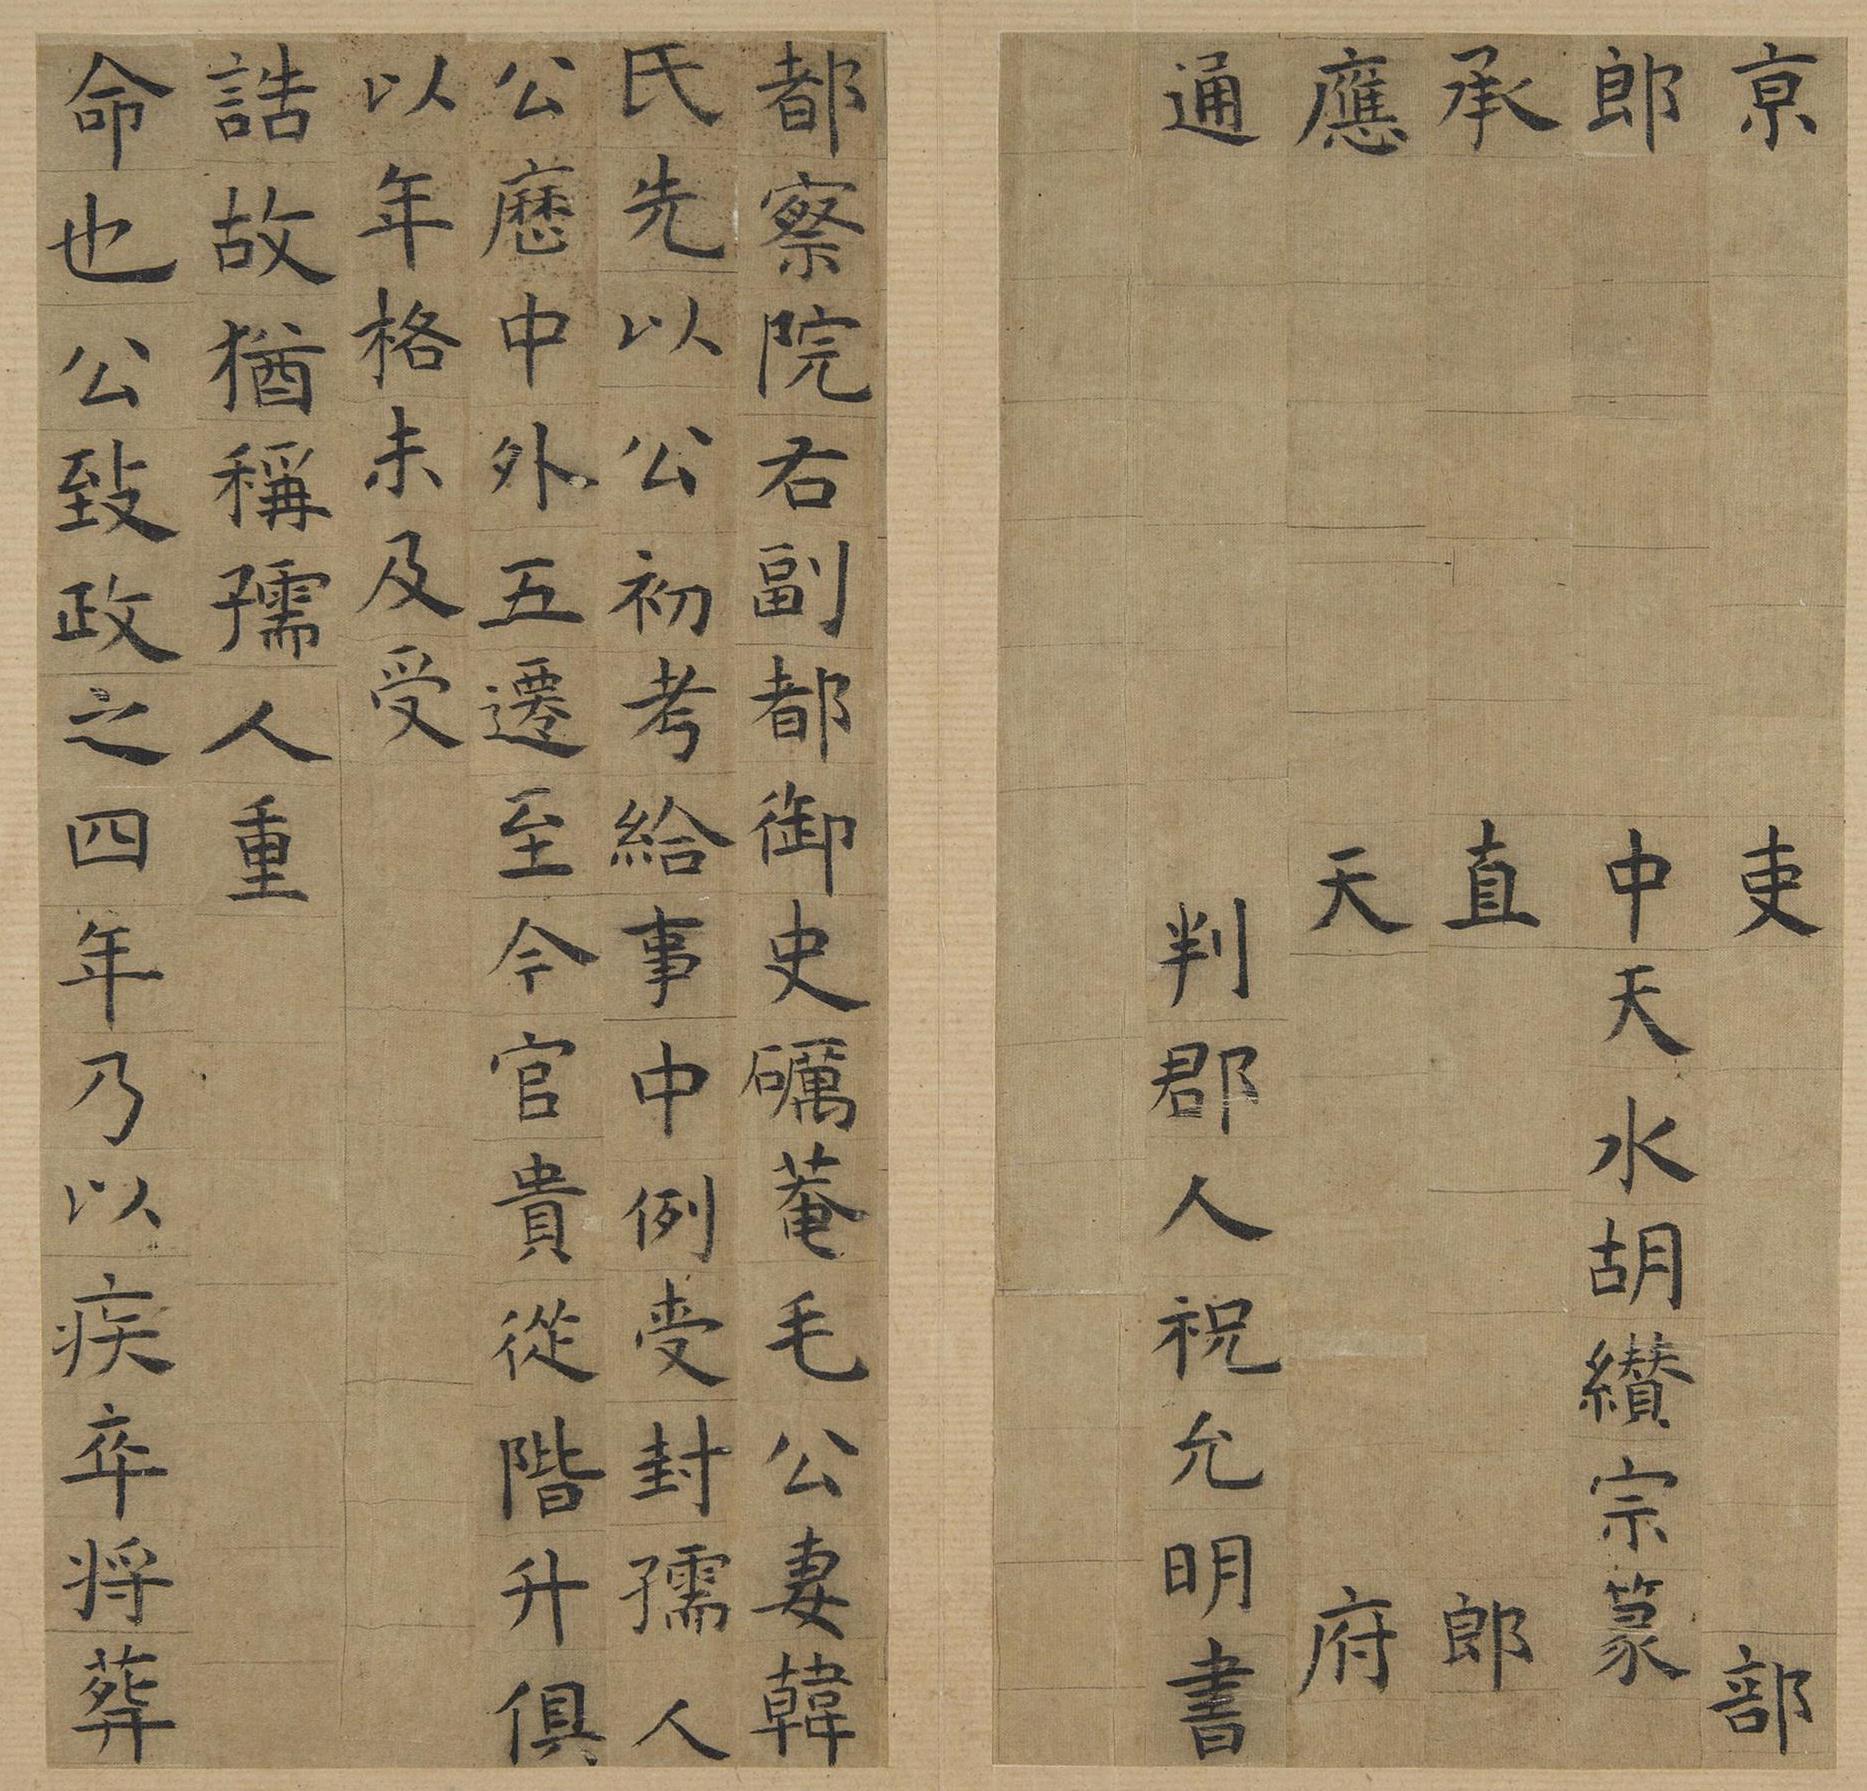 京吏部
郎中天水胡纘宗篆
承直郎
應天府
通判郡人祝允明書
都察院右副都御史礪菴毛公妻韓
氏先以公初考給事中例受封孺人
公歷中外五遷至今官貴從階升俱
以年格未及受
誥故猶稱孺人重
命也公致政之四年乃以疾卒將葬